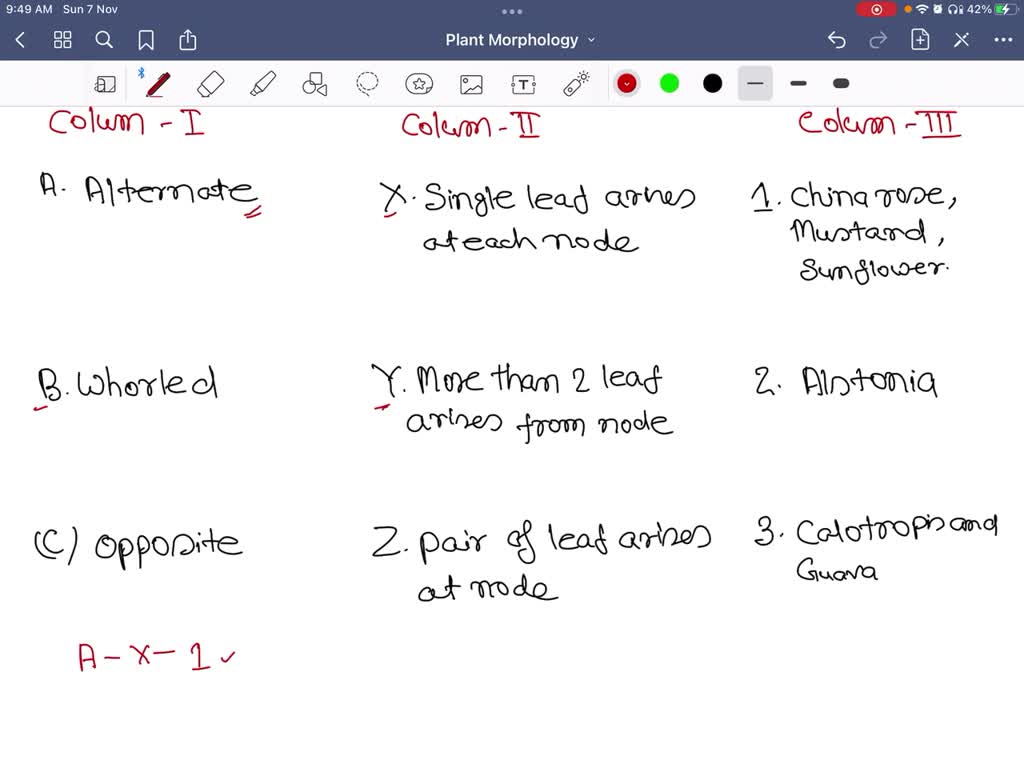 9:49 AM Sun 7 Nov
42%
Plant Morphology
T
Colum - I
Colum - II
Colum - III
A. Alternate
X. Single lead arises
at each node
1. China rose,
Mustard,
Sunflower.
B. Whorled
Y. More than 2 leaf
arises from node
2. Alstonia
(C) opposite
Z. pair of leaf arises
at node
3. Calotropis and
Guava
A - X - 1 ✓